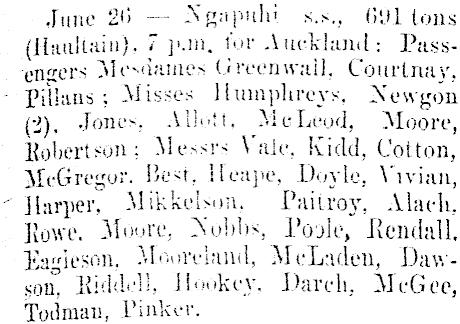 June 26 — Ngapuhi s.s., 691 tons
(Haultain), 7 p.m. for Auckland: Pass-
engers Mesdames Greenwall, Courtnay,
Pillans; Misses Humphreys, Newgon
(2), Jones, Allott, McLeod, Moore,
Robertson; Messrs Vale, Kidd, Cotton,
McGregor, Best, Heape, Doyle, Vivian,
Harper, Mikkelson, Paitroy, Alach,
Rowe, Moore, Nobbs, Poole, Rendall,
Eagleson, Mooreland, McLaden, Daw-
son, Riddell, Hookey, Darch, McGee,
Todman, Pinker.